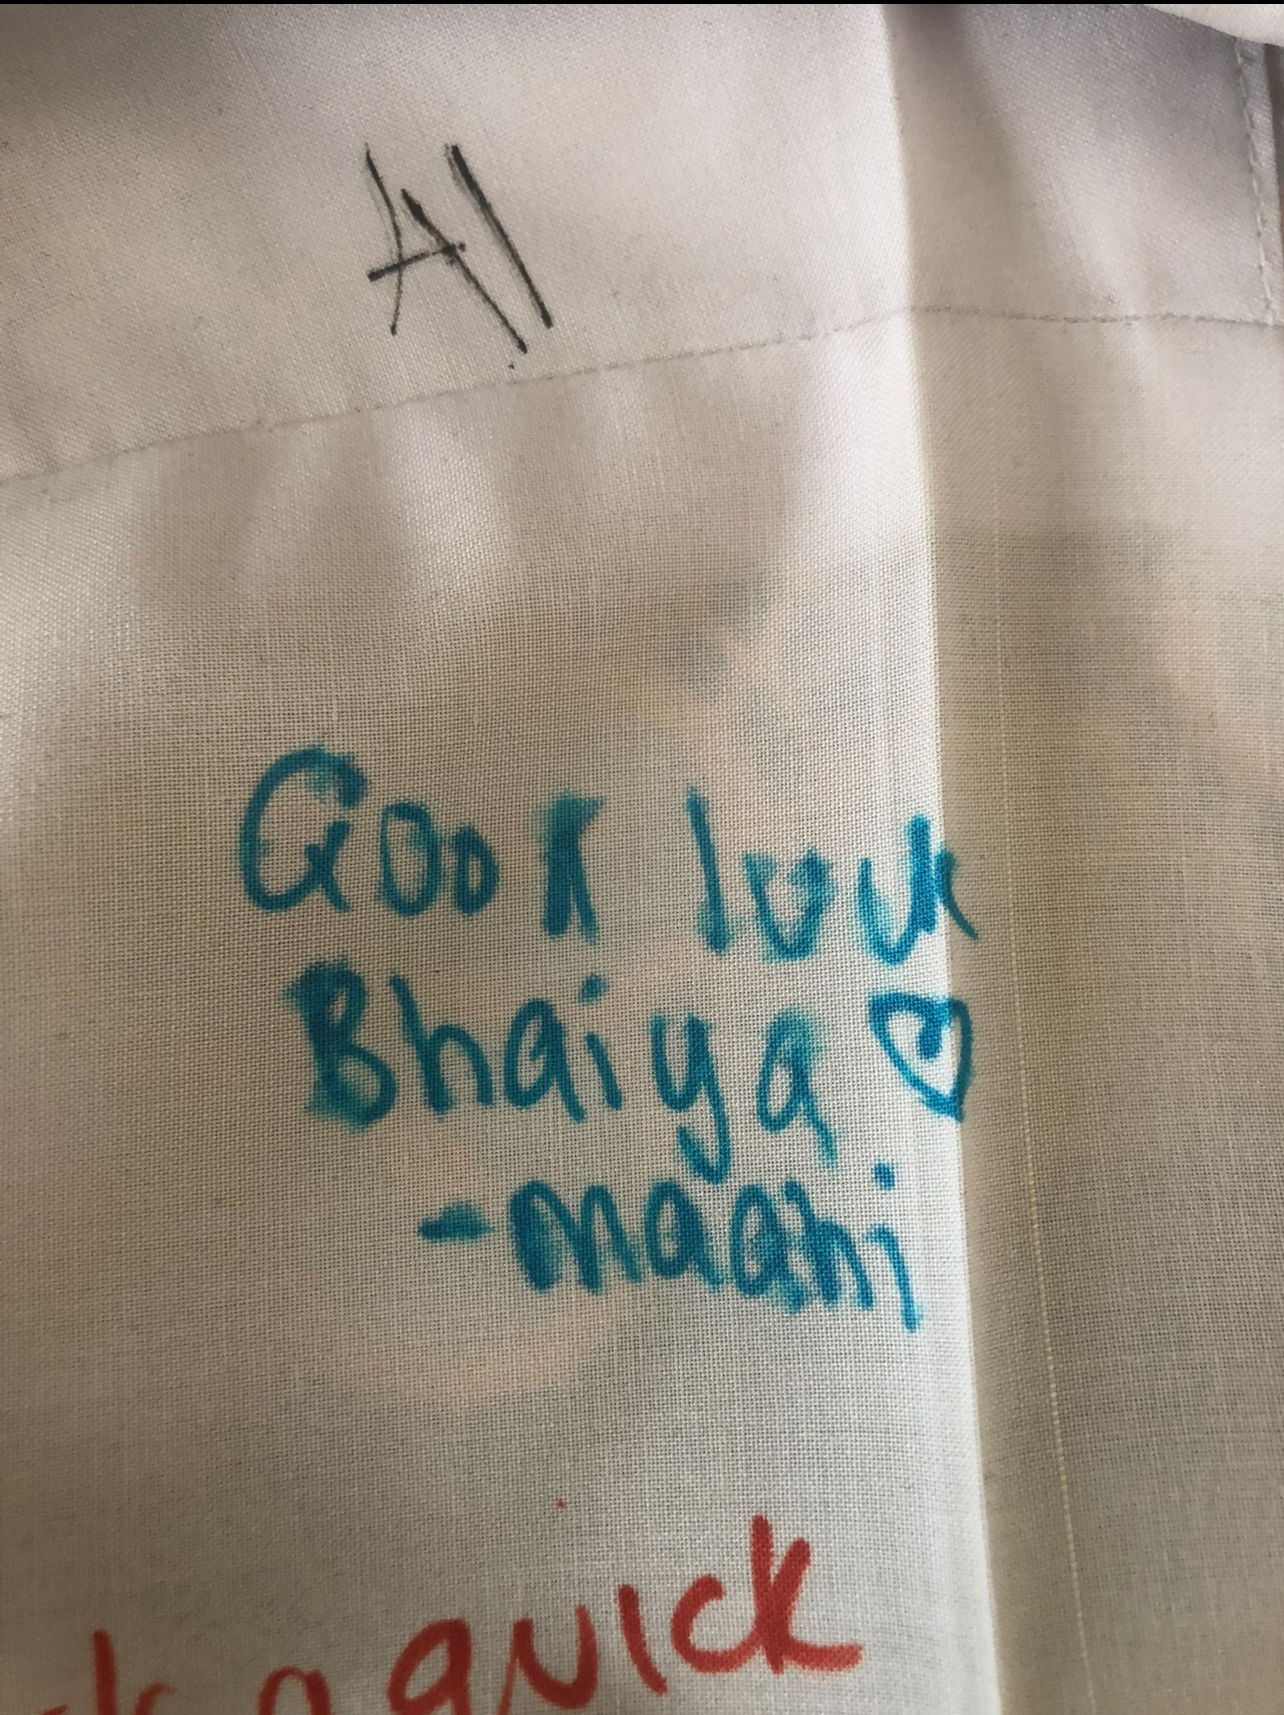 Good luck
Bhaiya ♡
-maahi
a quick